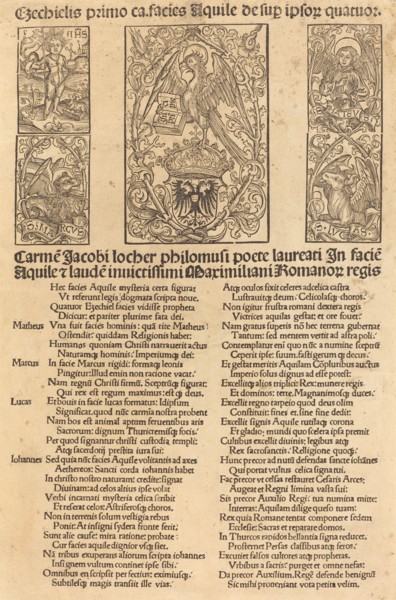 Ezechielis primo ca. facies Aquile desup ipsor quatuor.
IHS
S MARCVS
S LVCAS
Carmē Jacobi locher philomusi poete laureati In faciē
Aquile ⁊ laudē invictissimi Maximiliani Romanor regis
Hec facies Aquile mysteria certa figurat
Vt referunt legis dogmata scripta noue.
Quatuor Ezechiel facies vidisse propheta
Dicitur: et pariter plurime fari dei.
Matheus Vna fuit facies hominis: quā tite Matheus
Ostendit: quiddam Religionis habet:
Humanos quoniam Christi narrauerit actus
Naturamq hominis: Imperiumq dei:
Marcus In facie Marcus rigidi formaq leonis
Pingitur: Illud enim non ratione vacat.
Nam regnū Christi firmū, Sceptrūq figurat:
Qui rex est regum maximus: est q deus.
Lucas Et bouis in facie lucas formatur: Idipsum
Significat. quod nūc carmīa nostra probent
Nam bos est animal aptum feruentibus aris
Sacrorum: dignum Thuricremisq focis:
Per quod signantur christi custodia templi:
Atq sacerdotij prestita iura sui:
Iohannes Sed quia nūc facies Aquile volitantis ad axes
Aethereos: Sancti corda iohannis habet
In christo nostro naturam: credite: signat
Diuinam: ad celos altius ipse volat
Verbi incarnati mysteria celica scribit
Et reserat celos: Astriferosq choros.
Non in terrenis solum vestigia rebus
Ponit: At insigni sydera fronte ferit.
Sunt alie cause: mira ratione: probate:
Cur facies aquile dignior vsq siet.
Nā tribus exuperans aliorum scripta iohannes
Insignem vultum continet ipse sibi.
Omnibus en scripsit perfectius: eximiusq:
Subtilesq magis transijt ille vias.
Atq oculos fixit celeres adcelica castra
Lustrauitq deum: Celicolasq choros.
Non igitur frustra romani dextera regis
Victrices aquilas gestat: et ore fouet.
Nam gratus superis nō hec terrena gubernat
Tantum: sed mentem vertit ad astra poli:
Contemplatur eni quo nūc a numine sceptrū
Ceperit ipse: suum, fastigerum q decus.
Et gestat meritis Aquilam Cōpluribus auctus
Imperio solus dignus ad esse potest:
Excellitq alios triplici: Rex: munere regis
Et dominos: terre, Magnanimosq duces.
Excellit regno tarpeio quod deus olim
Constituit: fines et. sine fine dedit:
Excellit signis Aquile rutilaq corona
Et gladio: mundi quo scelera ipsa premit
Cultibus excellit diuinis: legibus atq
Rex sacrosanctis: Religione quoq:
Hunc precor ad nutū defendas sancte iohānes
Qui portat vultus celica signa tui.
Fac precor vt celsa restauret Cesaris Arcem
Augeat et Regni limina vasta sui:
Sis precor Auxilio Regi: tua numina mitte:
Interras: Aquilam dilige queso tuam:
Rex quia Romane tentat componere sedem
Ecclesie: Sacras et reparare domos.
In Thurcos rapidos bellantia signa reducet,
Prosternet Persas classibus atq feros.
Excutiet falsos cultores: atq prophetas.
Vrbibus a sacris: purget et omne nefas:
Da precor Auxilium, Regē defende benignū
Sic mihi prouenient pota petita velim.